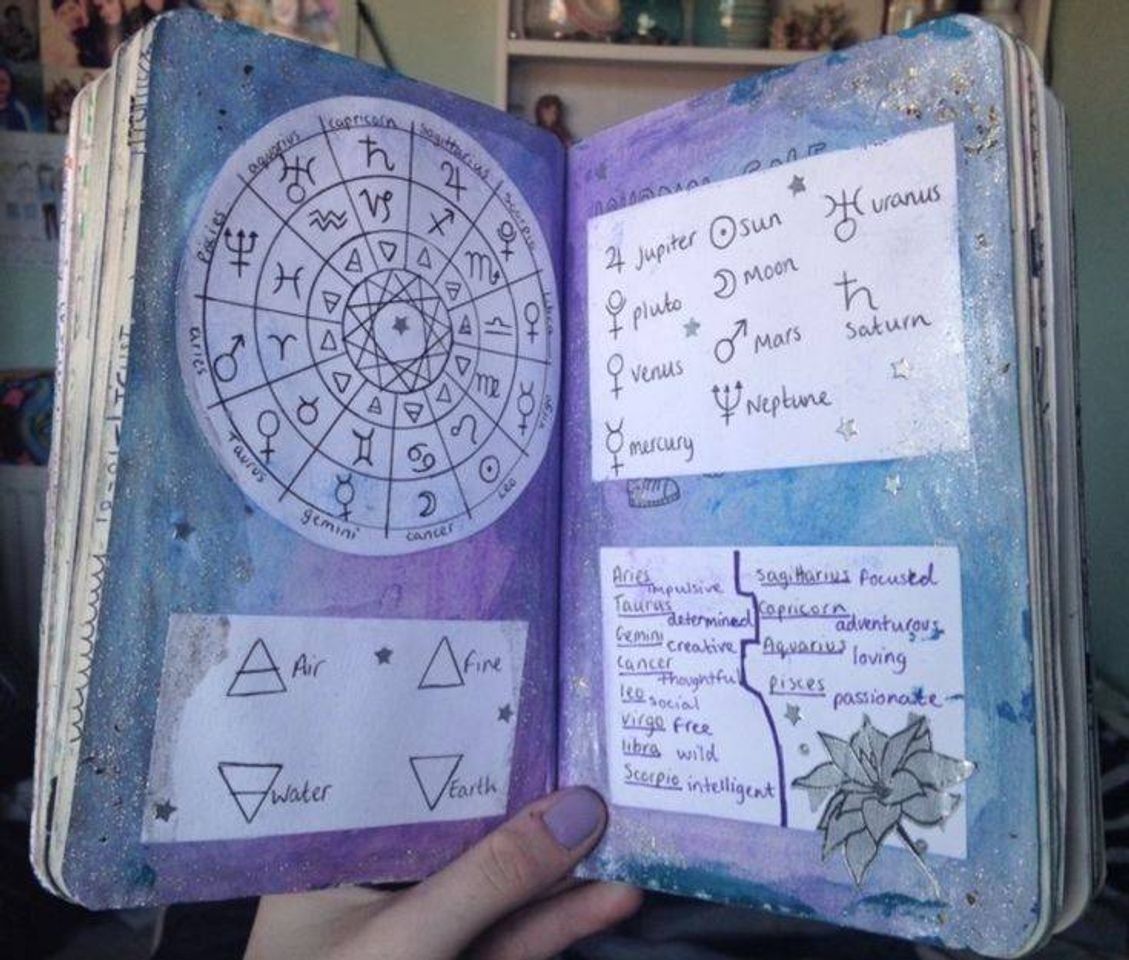 capricorn
sagittarius
scorpio
libra
virgo
leo
cancer
gemini
Taurus
aries
pisces
aquarius
Air
Fire
Water
Earth
Jupiter
Sun
uranus
pluto
Moon
Saturn
venus
Mars
mercury
Neptune
Aries impulsive
Taurus determined
Gemini creative
Cancer thoughtful
leo social
virgo free
libra wild
Scorpio intelligent
Sagittarius focused
Capricorn adventurous
Aquarius loving
pisces passionate